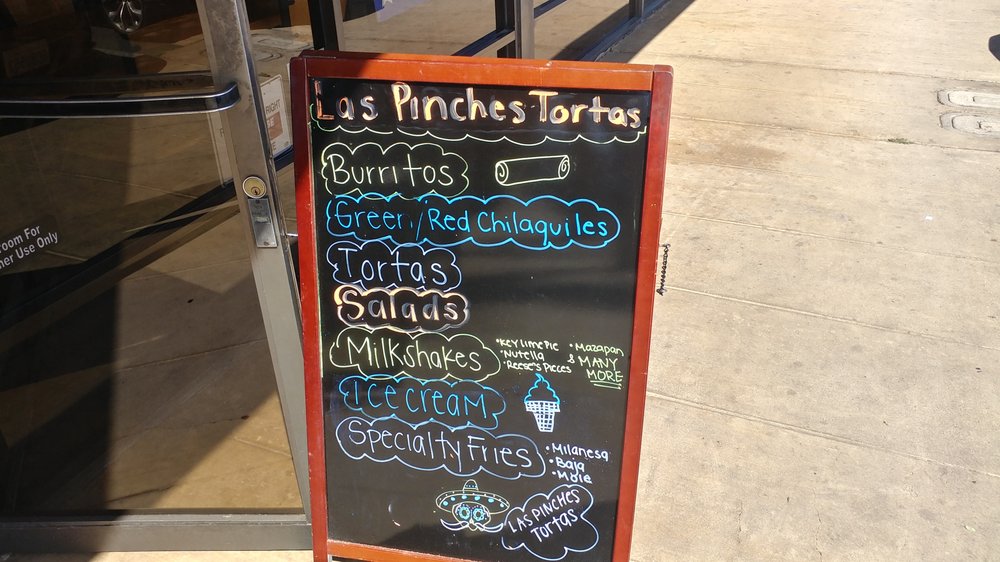 Las Pinches Tortas
Burritos
Green/Red Chilaquiles
Tortas
Salads
Milkshakes
• Key lime Pie
• Nutella
• Reese's Pieces
• Mazapan
& MANY
MORE
Ice cream
Specialty Fries
• Milanesa
• Baja
• Mole
LAS PINCHES
TORTAS
room For
Use Only